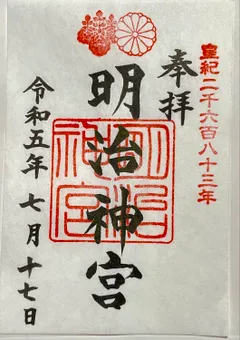 皇紀二千六百八十三年
奉拝
明治神宮
明治神宮
令和五年 七月 十七日